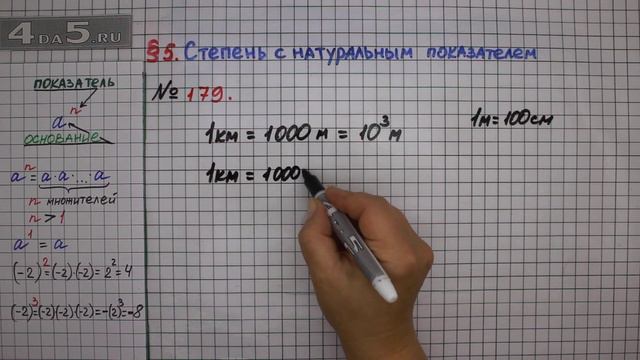 4DA5.RU
§5. Степень с натуральным показателем
показатель
aⁿ
основание
aⁿ = a·a·...·a
n множителей
n > 1
a¹ = a
(-2)²=(-2)·(-2)=2²=4
(-2)³=(-2)(-2)(-2)=-(2)³=-8
№ 179.
1км = 1000 м = 10³ м
1м = 100см
1км = 1000